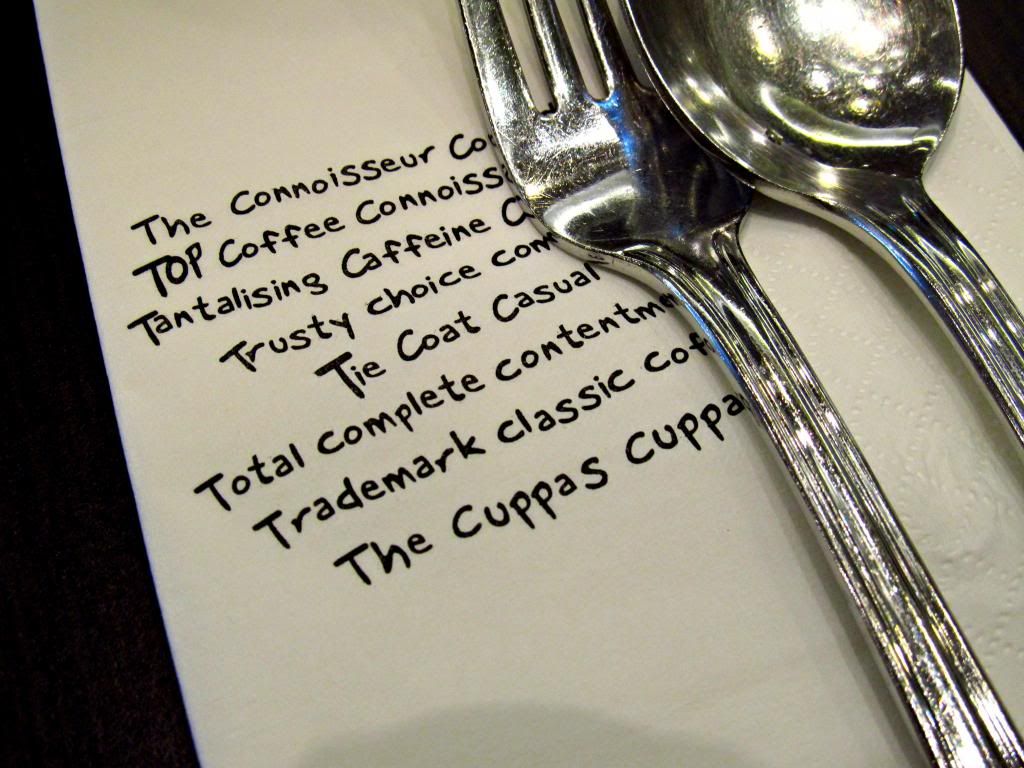 The Connoisseur
TOP Coffee
Tantalising Caffeine
Trusty choice
Tie Coat Casual
Total complete
Trademark classic
The Cuppas Cuppa